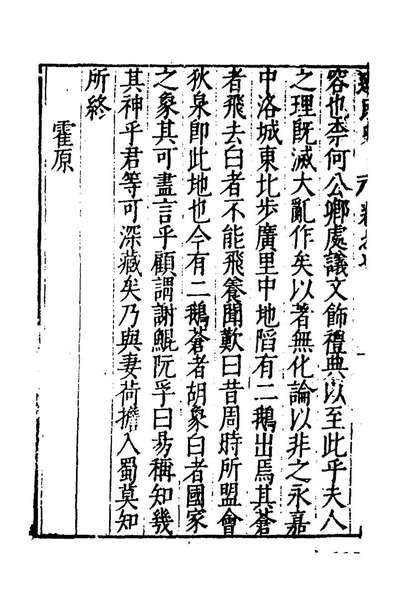 容也柰何公卿處議文飾禮典以至此乎夫人
之理旣滅大亂作矣以著無化論以非之永嘉
中洛城東比步廣里中地陷有二鵝出焉其蒼
者飛去白者不能飛養聞歎曰昔周時所盟會
狄泉卽此地也今有二鵝蒼者胡象白者國家
之象其可盡言乎顧謂謝鯤阮乎曰易稱知幾
其神乎君等可深藏矣乃與妻荷擔入蜀莫知
所終
霍原